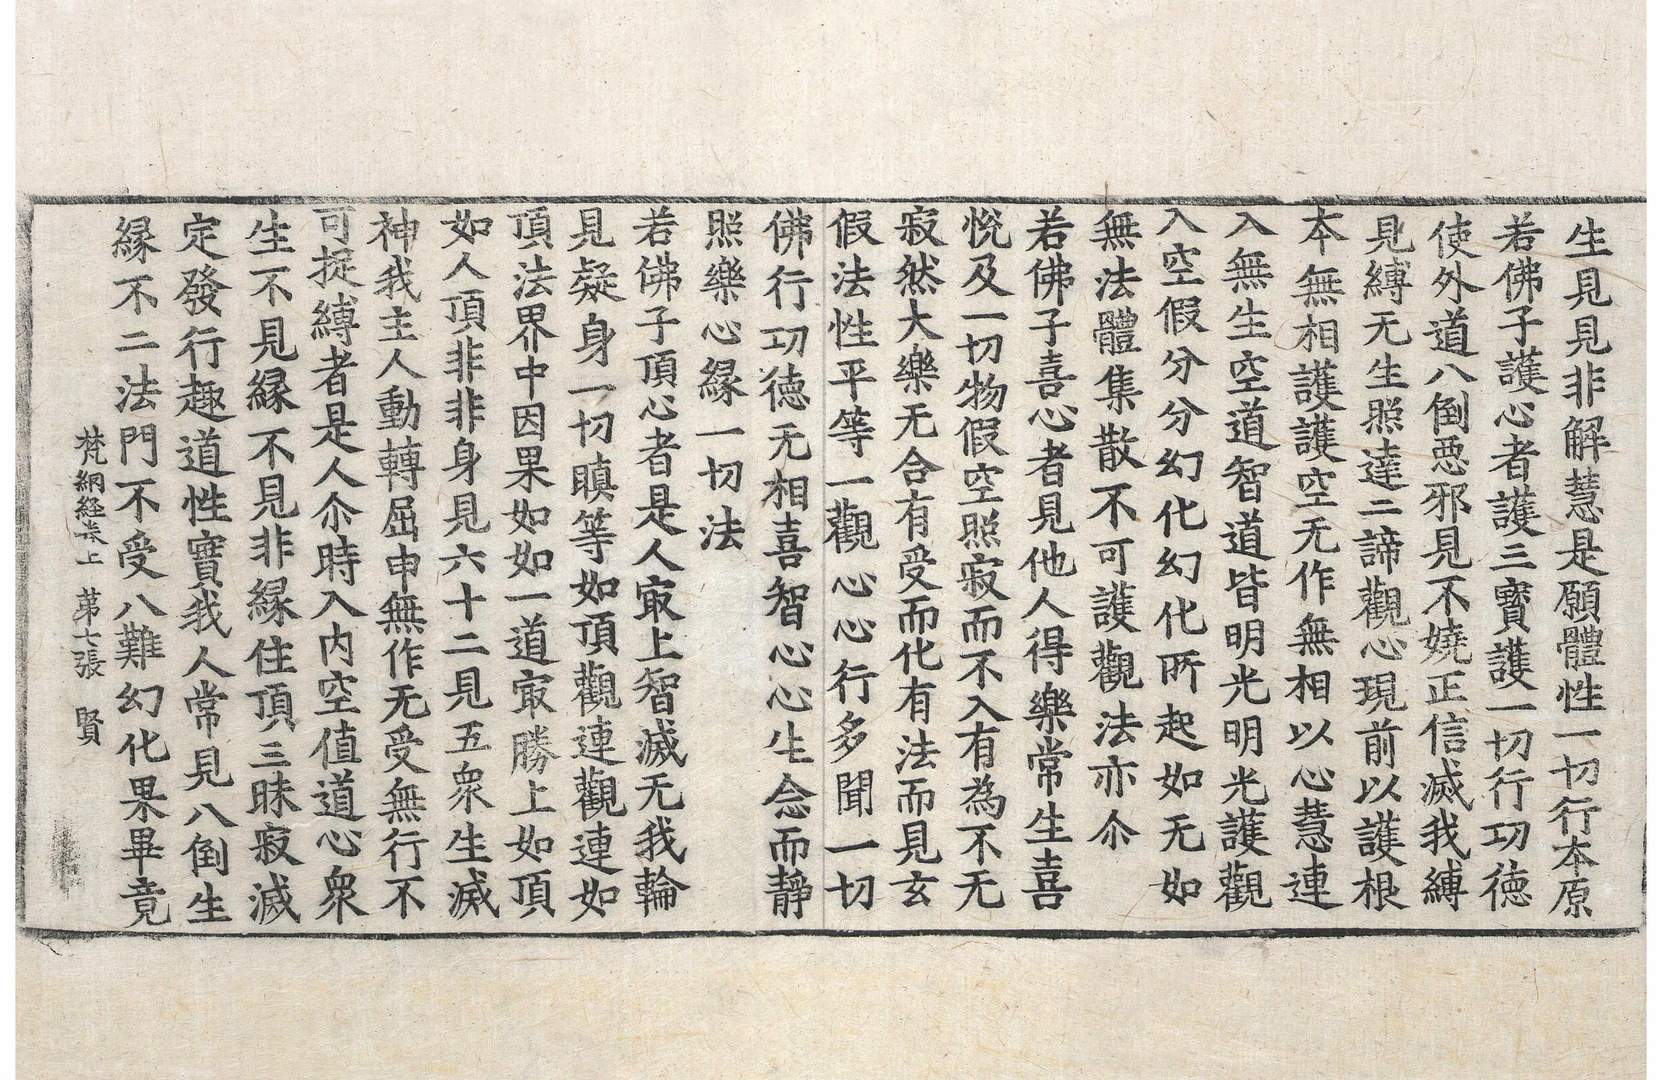 生見見非解慧是願體性一切行本原
若佛子護心者護三寶護一切行功德
使外道八倒悪邪見不嬈正信滅我縛
見縛无生照達二諦觀心現前以護根
本無相護護空无作無相以心慧連
入無生空道智道皆明光明光護觀
入空假分分幻化幻化所起如无如
無法體集散不可護觀法亦尒
若佛子喜心者見他人得樂常生喜
悅及一切物假空照寂而不入有為不无
寂然大樂无合有受而化有法而見玄
假法性平等一觀心心行多聞一切
佛行功德无相喜智心心生念而靜
照樂心縁一切法
若佛子頂心者是人㝡上智滅无我輪
見疑身一切瞋等如頂觀連觀連如
頂法界中因果如如一道㝡勝上如頂
如人頂非非身見六十二見五衆生滅
神我主人動轉屈申無作无受無行不
可捉縛者是人尒時入内空值道心衆
生不見縁不見非縁住頂三昧寂滅
定發行趣道性實我人常見八倒生
縁不二法門不受八難幻化果畢竟
梵網経卷上 第七張 賢